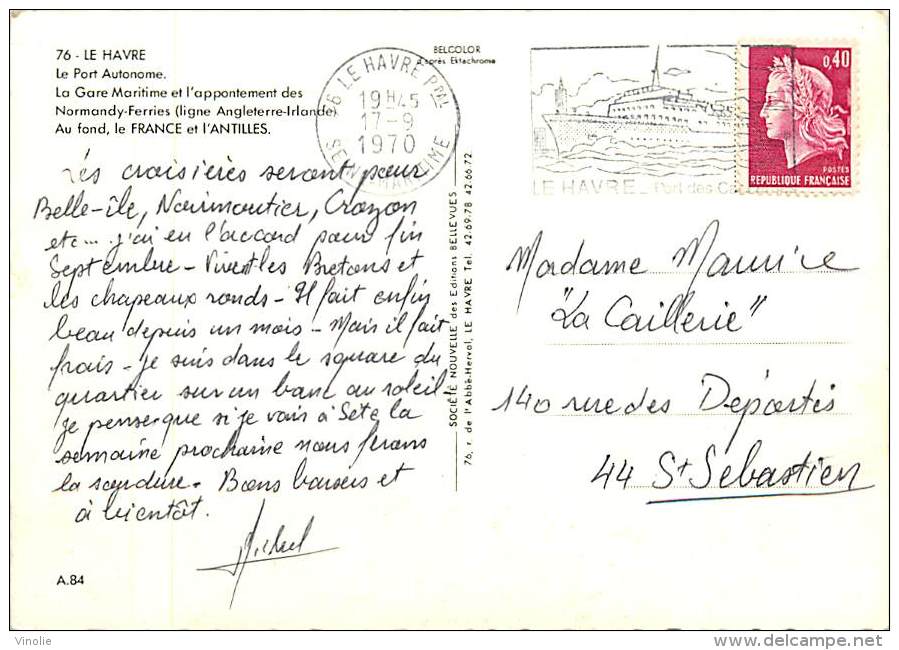 76 - LE HAVRE
Le Port Autonome.
La Gare Maritime et l'appontement des
Normandy-Ferries (ligne Angleterre-Irlande)
Au fond, le FRANCE et l'ANTILLES.
BELCOLOR
d'après Ektachrome
76 LE HAVRE Ppal
19H45
17-9
1970
SEINE-MARITIME
LE HAVRE _ Port des
0,40
POSTES
REPUBLIQUE FRANÇAISE
Les croisières seront pour
Belle-île, Noirmoutier, Crozon
etc... j'ai eu l'accord pour fin
Septembre - Vivent les Bretons et
les chapeaux ronds - Il fait enfin
beau depuis un mois - Mais il fait
frais - je suis dans le square du
quartier sur un banc au soleil!
Je pense que si je vais à Sète la
semaine prochaine nous ferons
la soudure. Bons baisers et
à bientôt.
Michel
A.84
SOCIÉTÉ NOUVELLE des Editions BELLEVUES
76, r. de l'Abbé-Herval, LE HAVRE Tel. 42.69.78 42.66.72
Madame Maurice
"La Caillerie"
140 rue des Déportés
44 St Sébastien
Vinolie
delcampe.net